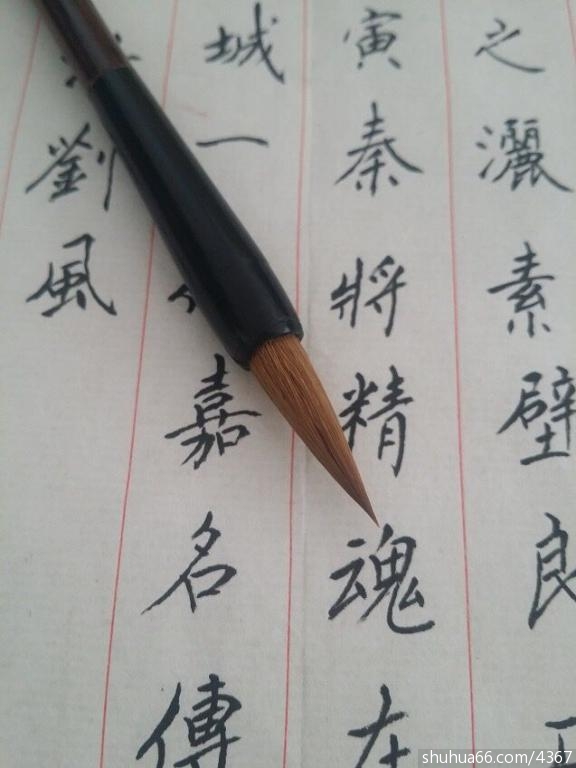 之灑素壁良
寅秦將精魂在
城一嘉名傳
劉風
shuhua66.com/4367